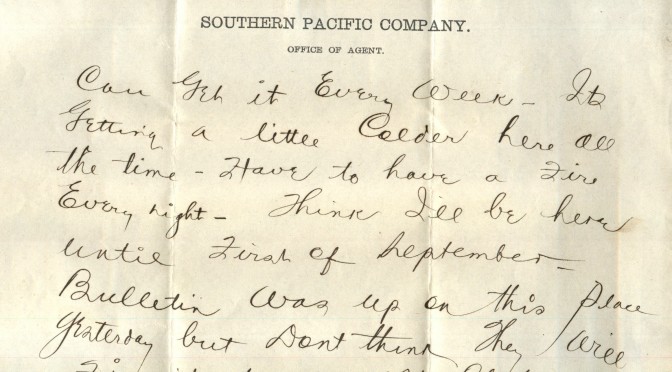 SOUTHERN PACIFIC COMPANY.
OFFICE OF AGENT.
Can Get it Every Week - Its
Getting a little Colder here all
the time - Have to have a Fire
Every night - Think I'll be here
until First of September -
Bulletin was up on this place
yesterday but Dont think They will